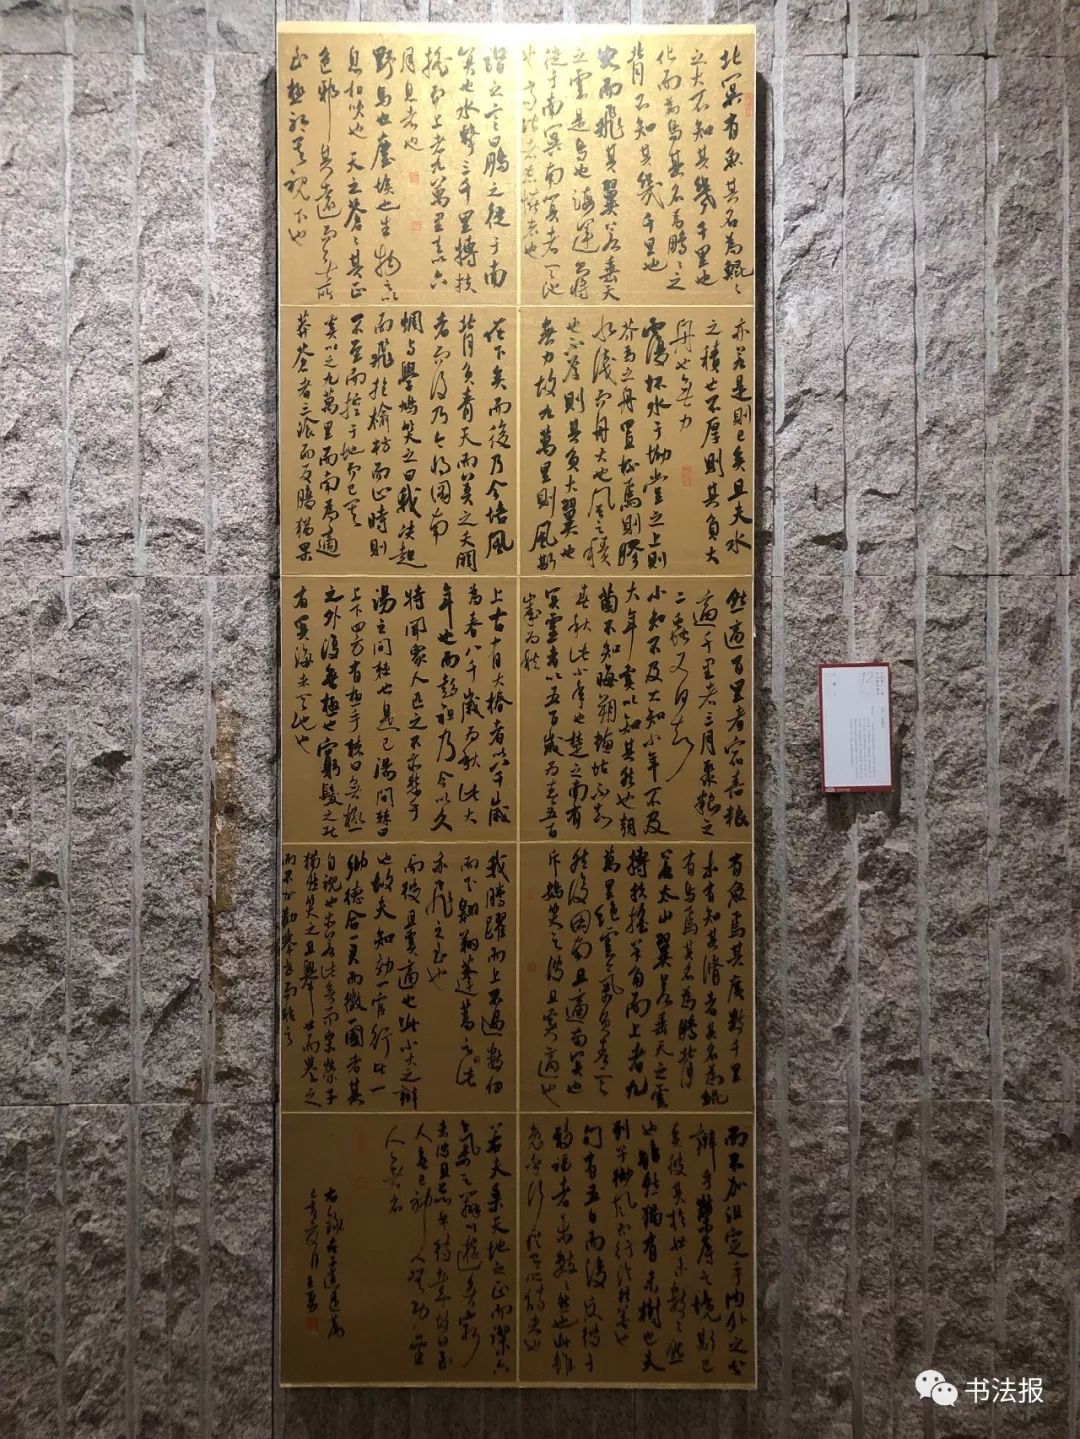 北冥有魚其名為鯤〻
之大不知其幾千里也
化而為鳥其名為鵬〻之
背不知其幾千里也
怒而飛其翼若垂天
之雲是鳥也海運則將
徙于南冥南冥者天池
也齊諧者志怪者也
諧之言曰鵬之徙于南
冥也水擊三千里摶扶
搖而上者九萬里去以六
月息者也
野馬也塵埃也生物之以
息相吹也天之蒼〻其正
色邪其遠而無所
至極邪其視下也
亦若是則已矣且夫水
之積也不厚則其負大
舟也無力
覆杯水于坳堂之上則
芥為之舟置杯焉則膠
水淺而舟大也風之積
也不厚則其負大翼也
無力故九萬里則風斯
在下矣而後乃今培風
背負青天而莫之夭閼
者而後乃今將圖南
蜩與學鳩笑之曰我決起
而飛搶榆枋而止時則
不至而控于地而已矣
奚以之九萬里而南為適
莽蒼者三飡而反腹猶果
然適百里者宿舂糧
適千里者三月聚糧之
二蟲又何知
小知不及大知小年不及
大年奚以知其然也朝
菌不知晦朔蟪蛄不知
春秋此小年也楚之南有
冥靈者以五百歲為春五百
歲為秋
上古有大椿者以八千歲
為春八千歲為秋此大
年也而彭祖乃今以久
特聞眾人匹之不亦悲乎
湯之問棘也是已湯問棘曰
上下四方有極乎棘曰無極
之外復無極也窮髮之北
有冥海者天池也
有魚焉其廣數千里
未有知其脩者其名為鯤
有鳥焉其名為鵬背
若太山翼若垂天之雲
摶扶搖羊角而上者九
萬里絕雲氣負青天
然後圖南且適南冥也
斥鴳笑之彼且奚適也
我騰躍而上不過數仞
而下翱翔蓬蒿之間此
亦飛之至也
而彼且奚適也此小大之辯
也故夫知效一官行比一
鄉德合一君而徵一國者其
自視也亦若此矣而宋榮子
猶然笑之且舉世而譽之
而不加勸舉世而非之
而不加沮定乎內外之分
辯乎榮辱之境斯已
矣彼其於世未數〻然
也雖然猶有未樹也夫
列子御風而行泠然善也
旬有五日而後反彼于
致福者未數〻然也此雖
免乎行猶有所待者也
若夫乘天地之正而御六
氣之辯以遊無窮
者彼且惡乎待哉故曰至
人無己神人無功聖
人無名
右錄莊子逍遙遊
己亥夏月王
书法报